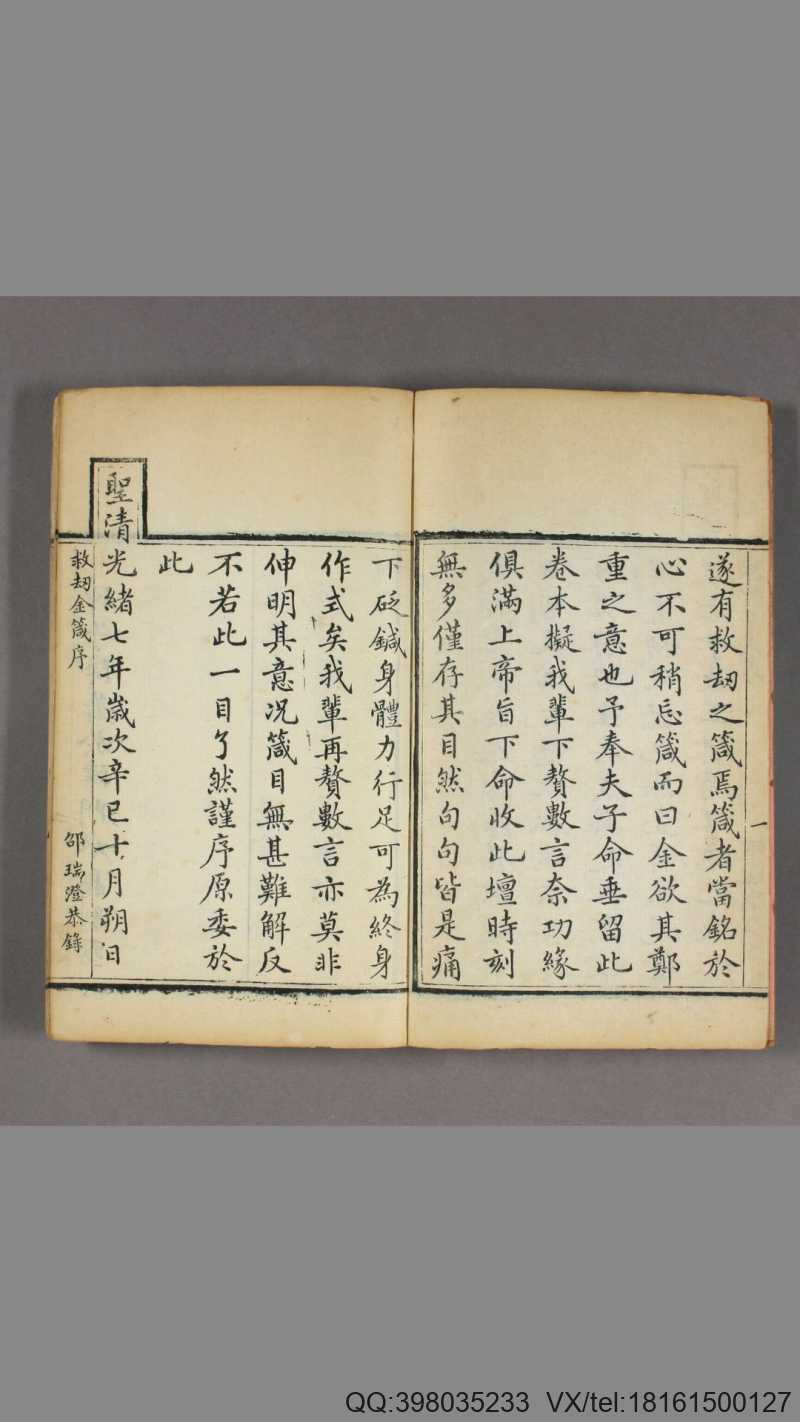 遂有救刼之箴焉箴者當銘於
心不可稍忘箴而曰金欲其鄭
重之意也予奉夫子命垂留此
卷本擬我輩下贅數言奈功緣
俱滿上帝旨下命收此壇時刻
無多僅存其目然句句皆是痛
一
下砭鍼身體力行足可為終身
作式矣我輩再贅數言亦莫非
伸明其意况箴目無甚難解反
不若此一目了然謹序原委於
此
聖清
光緒七年歲次辛巳十月朔日
救刼金箴序
邵瑞澄恭錄
QQ:398035233 VX/tel:18161500127